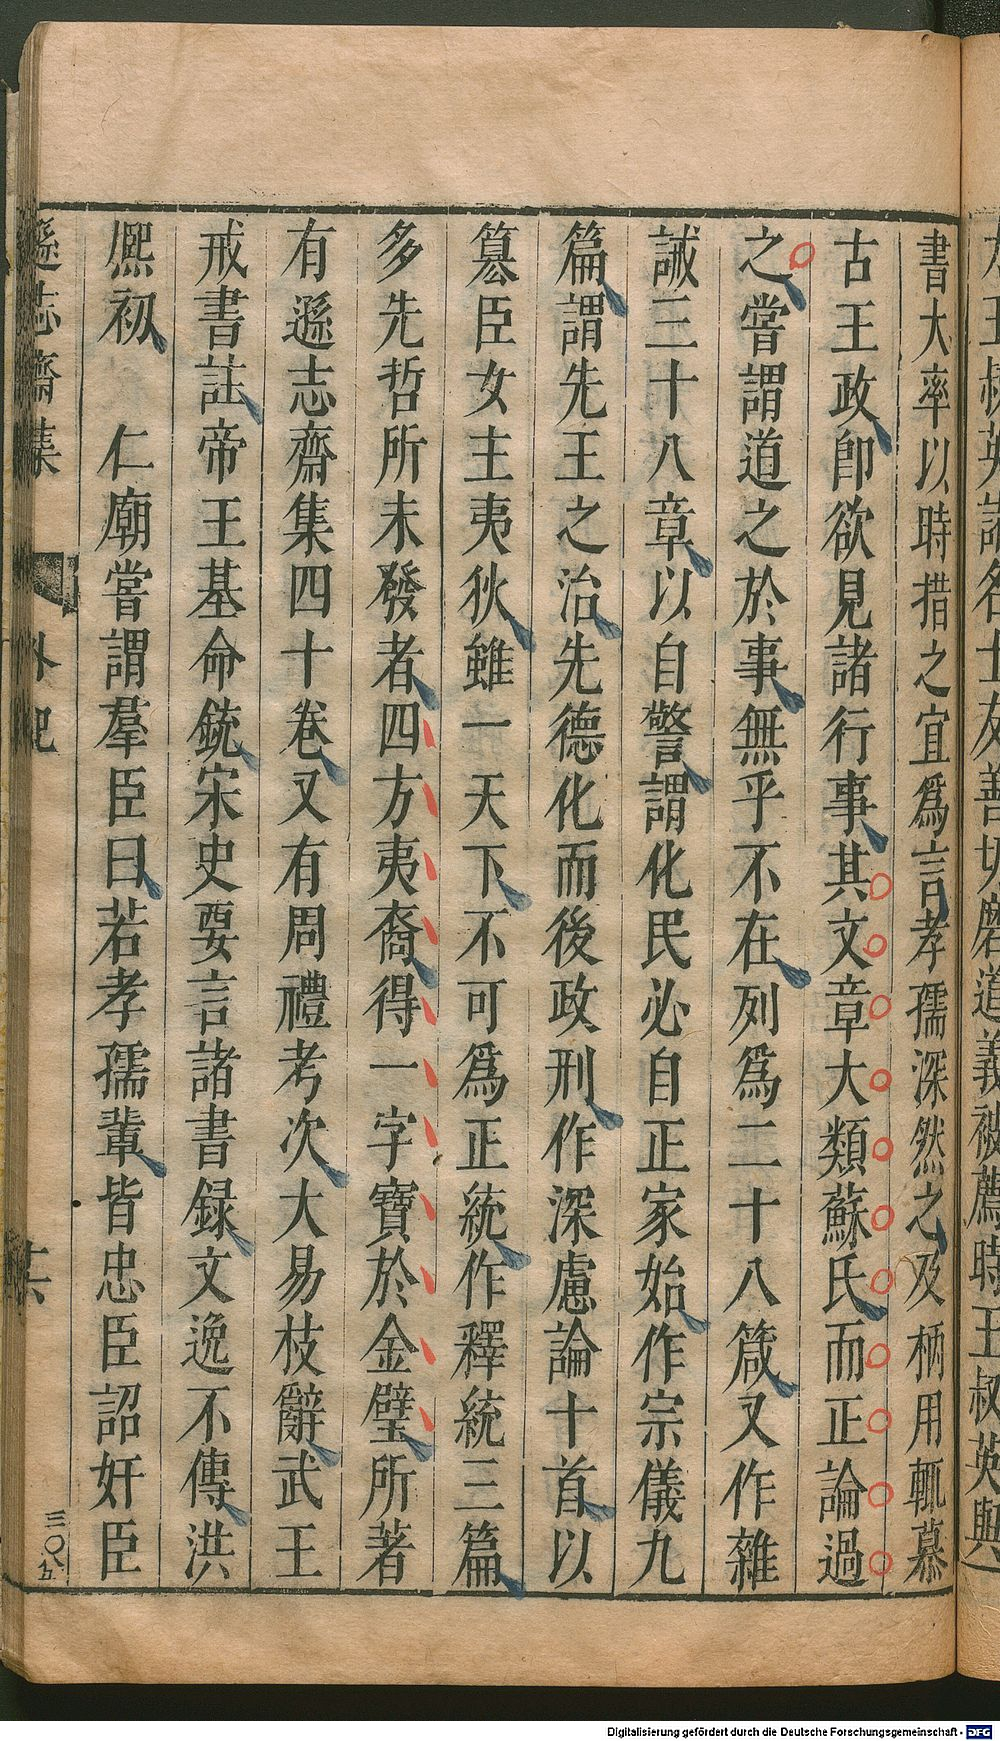 書大率以時措之宜爲言孝孺深然之及柄用輒慕
古王政卽欲見諸行事其文章大類蘇氏而正論過
之嘗謂道之於事無乎不在列爲二十八箴又作雜
誡三十八章以自警謂化民必自正家始作宗儀九
篇謂先王之治先德化而後政刑作深慮論十首以
簒臣女主夷狄雖一天下不可爲正統作釋統三篇
多先哲所未發者四方夷裔得一字寶於金璧所著
有遜志齋集四十卷又有周禮考次大易枝辭武王
戒書註帝王基命銃宋史要言諸書録文逸不傳洪
熙初 仁廟嘗謂羣臣曰若孝孺輩皆忠臣詔奸臣
遜志齋集 外紀
三〇八五
Digitalisierung gefördert durch die Deutsche Forschungsgemeinschaft - DFG